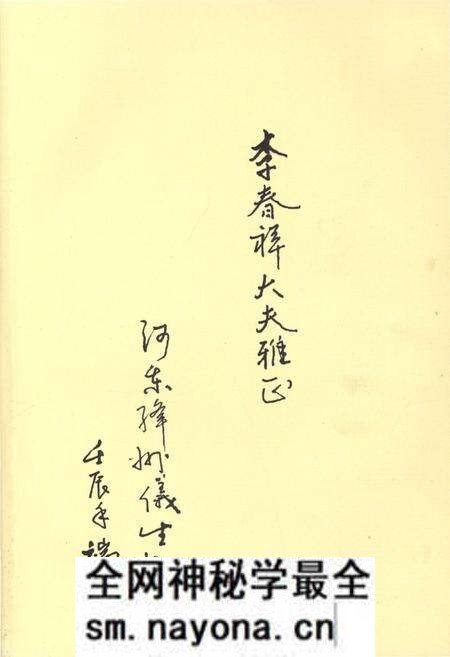 李春祥大夫雅正
河东绛州仪生
壬辰年端
全网神秘学最全
sm.nayona.cn